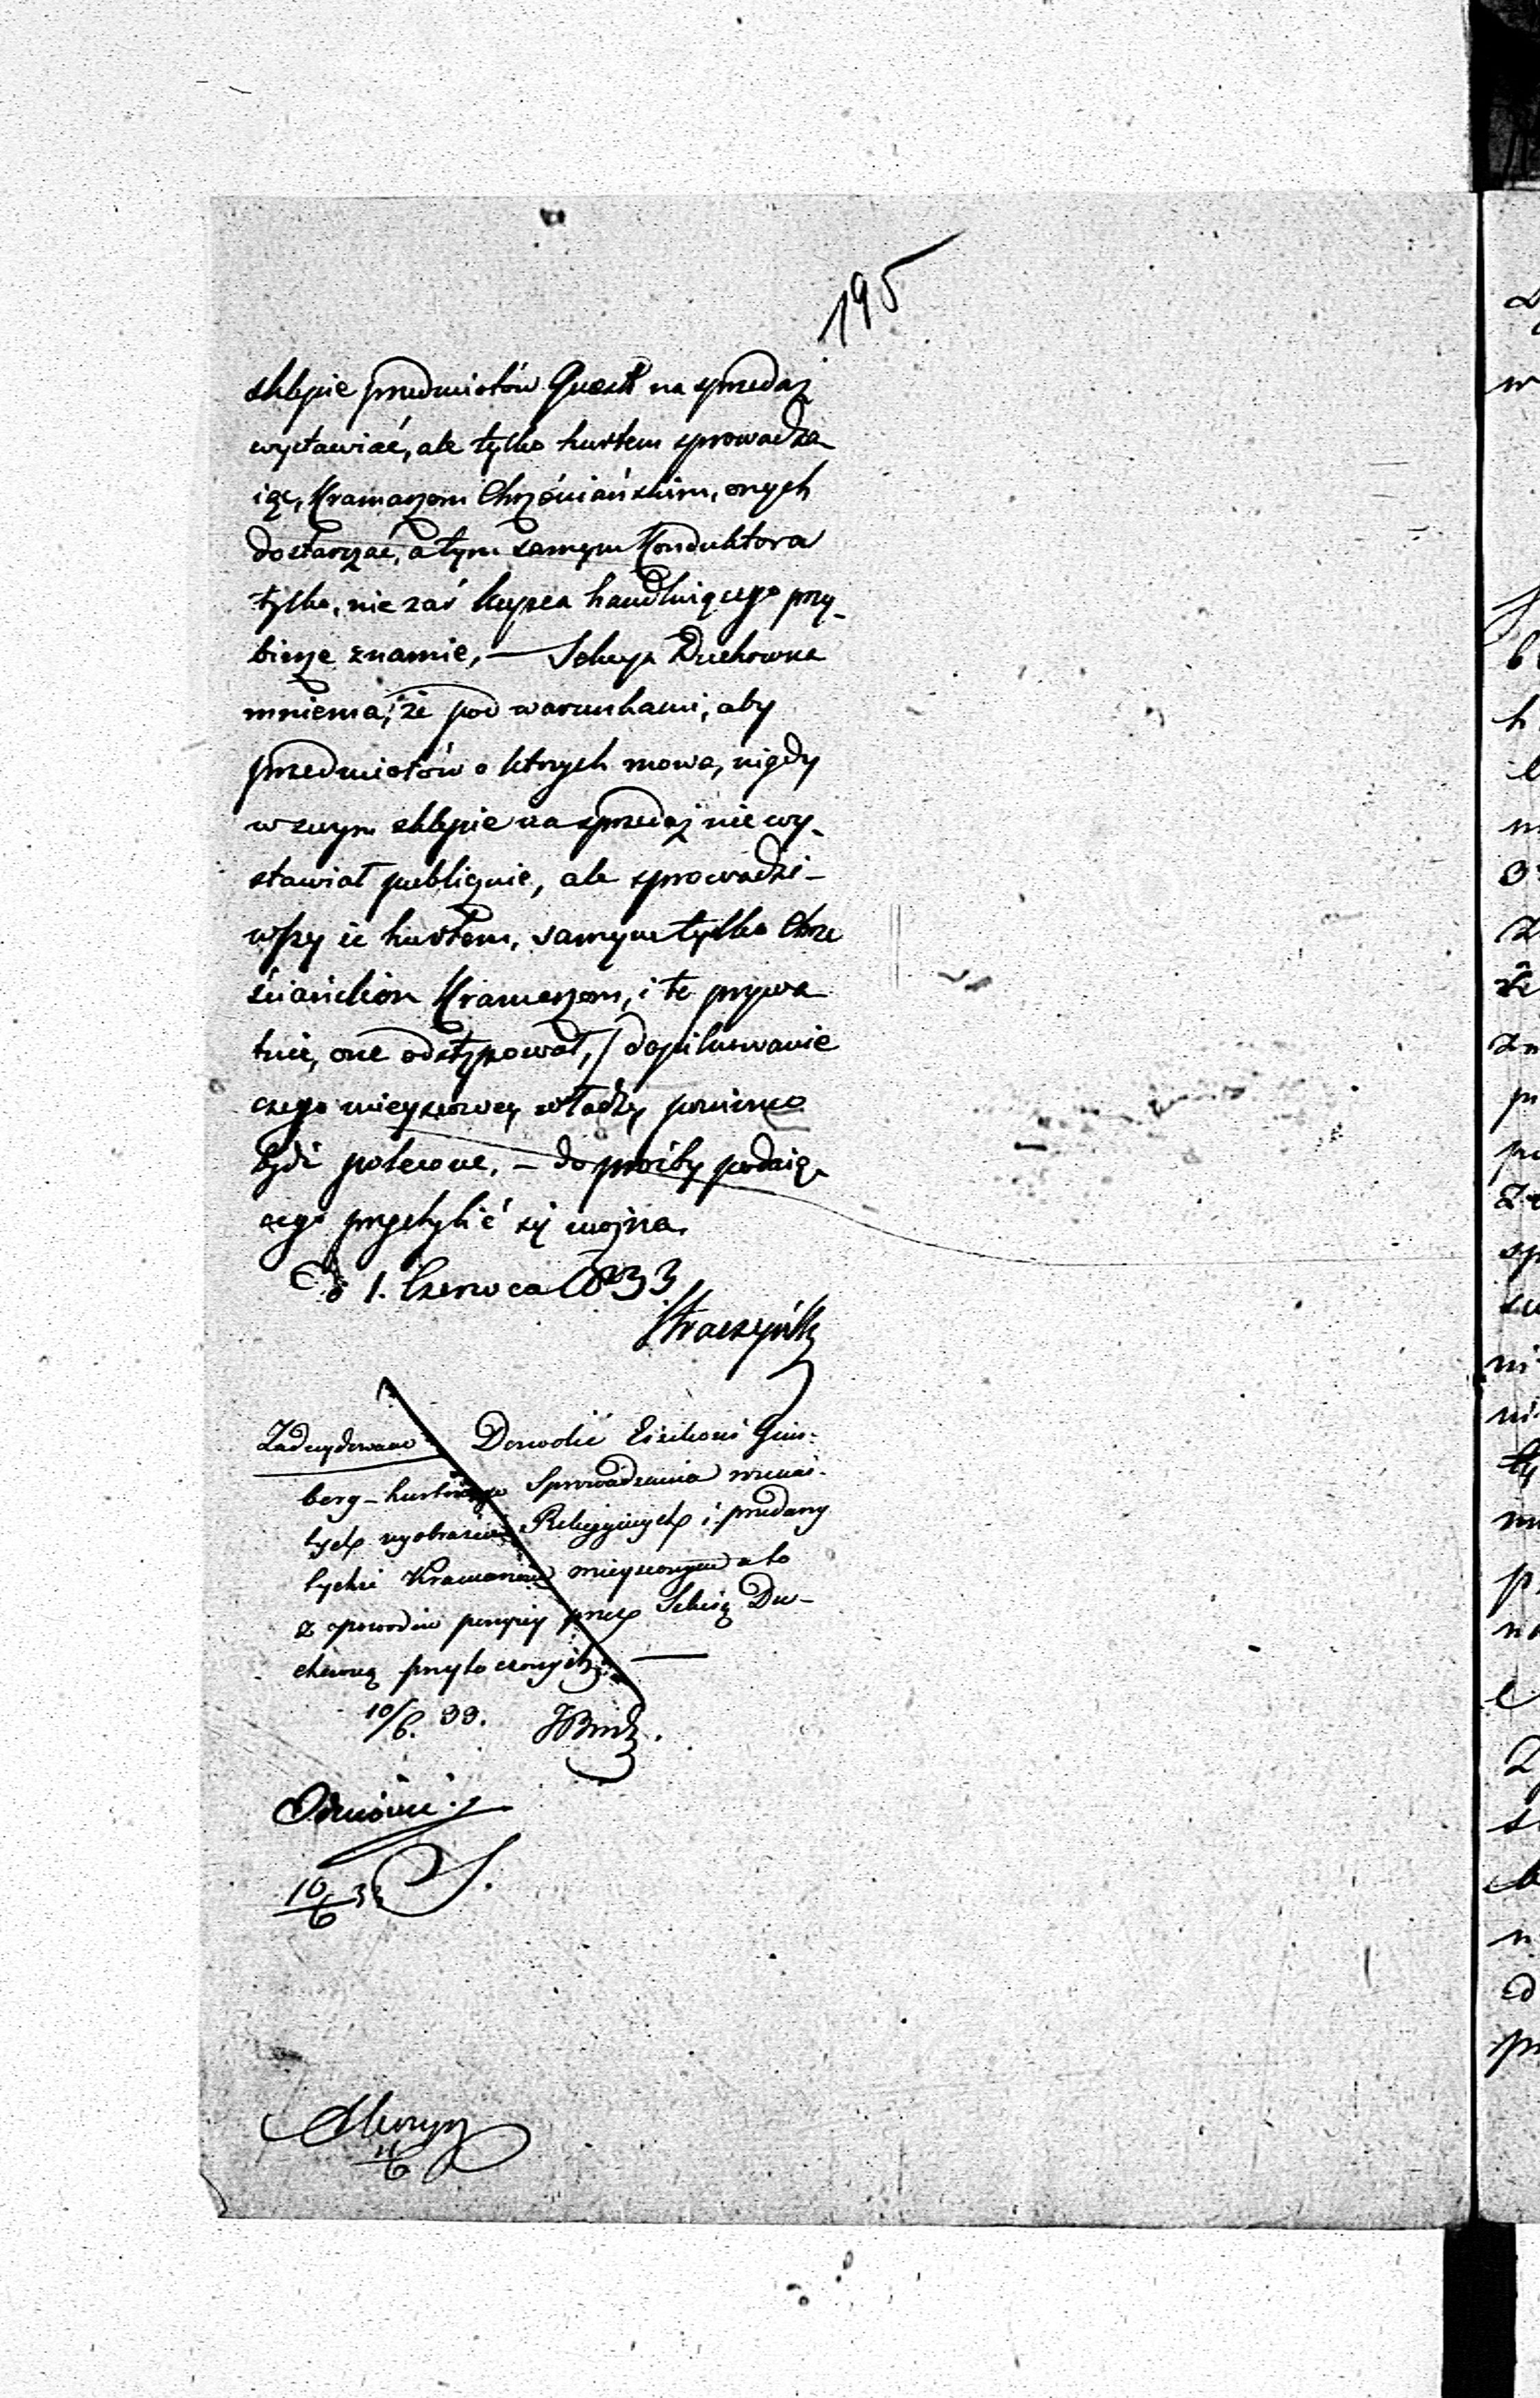 195
sklepie przedmiotów na sprzedaż
wystawiać, ale tylko hurtem sprowadza-
iąc, Kramarzom Chrzściańskim, onych
dostarczać, a tym samym Konduktora
tylko, nie zaś kupca handluiącego przy-
bierze znamie, — Sekcya Duchowna
mniema, że pod warunkami, aby
przedmiotów o których mowa, nigdy
w swym sklepie na sprzedaż nie wy-
stawiał publicznie, ale sprowadzi-
wszy ie hurtem, samym tylko Chrze
ściańskim Kramarzom, i te prywa
tnie, one odstępował, / dopilnowanie
czego mieyscowey władzy powinno
bydź polecone, — do prośby podaią-
cego przychylić się można.
D. 1. Czerwca 1833
Straszyński
Zadecydowano Dozwolić Gins-
berg - hurtowego Sprowadzenia
tych wyobrażeń Religiynych i przedaży
tychże Kramarzom mieyscowym a to
z powodów powyżey przez Sekcią Du-
chowną przytoczonych. —
10/6. 33.
Odmówić.
10/6 33 S.
11/6